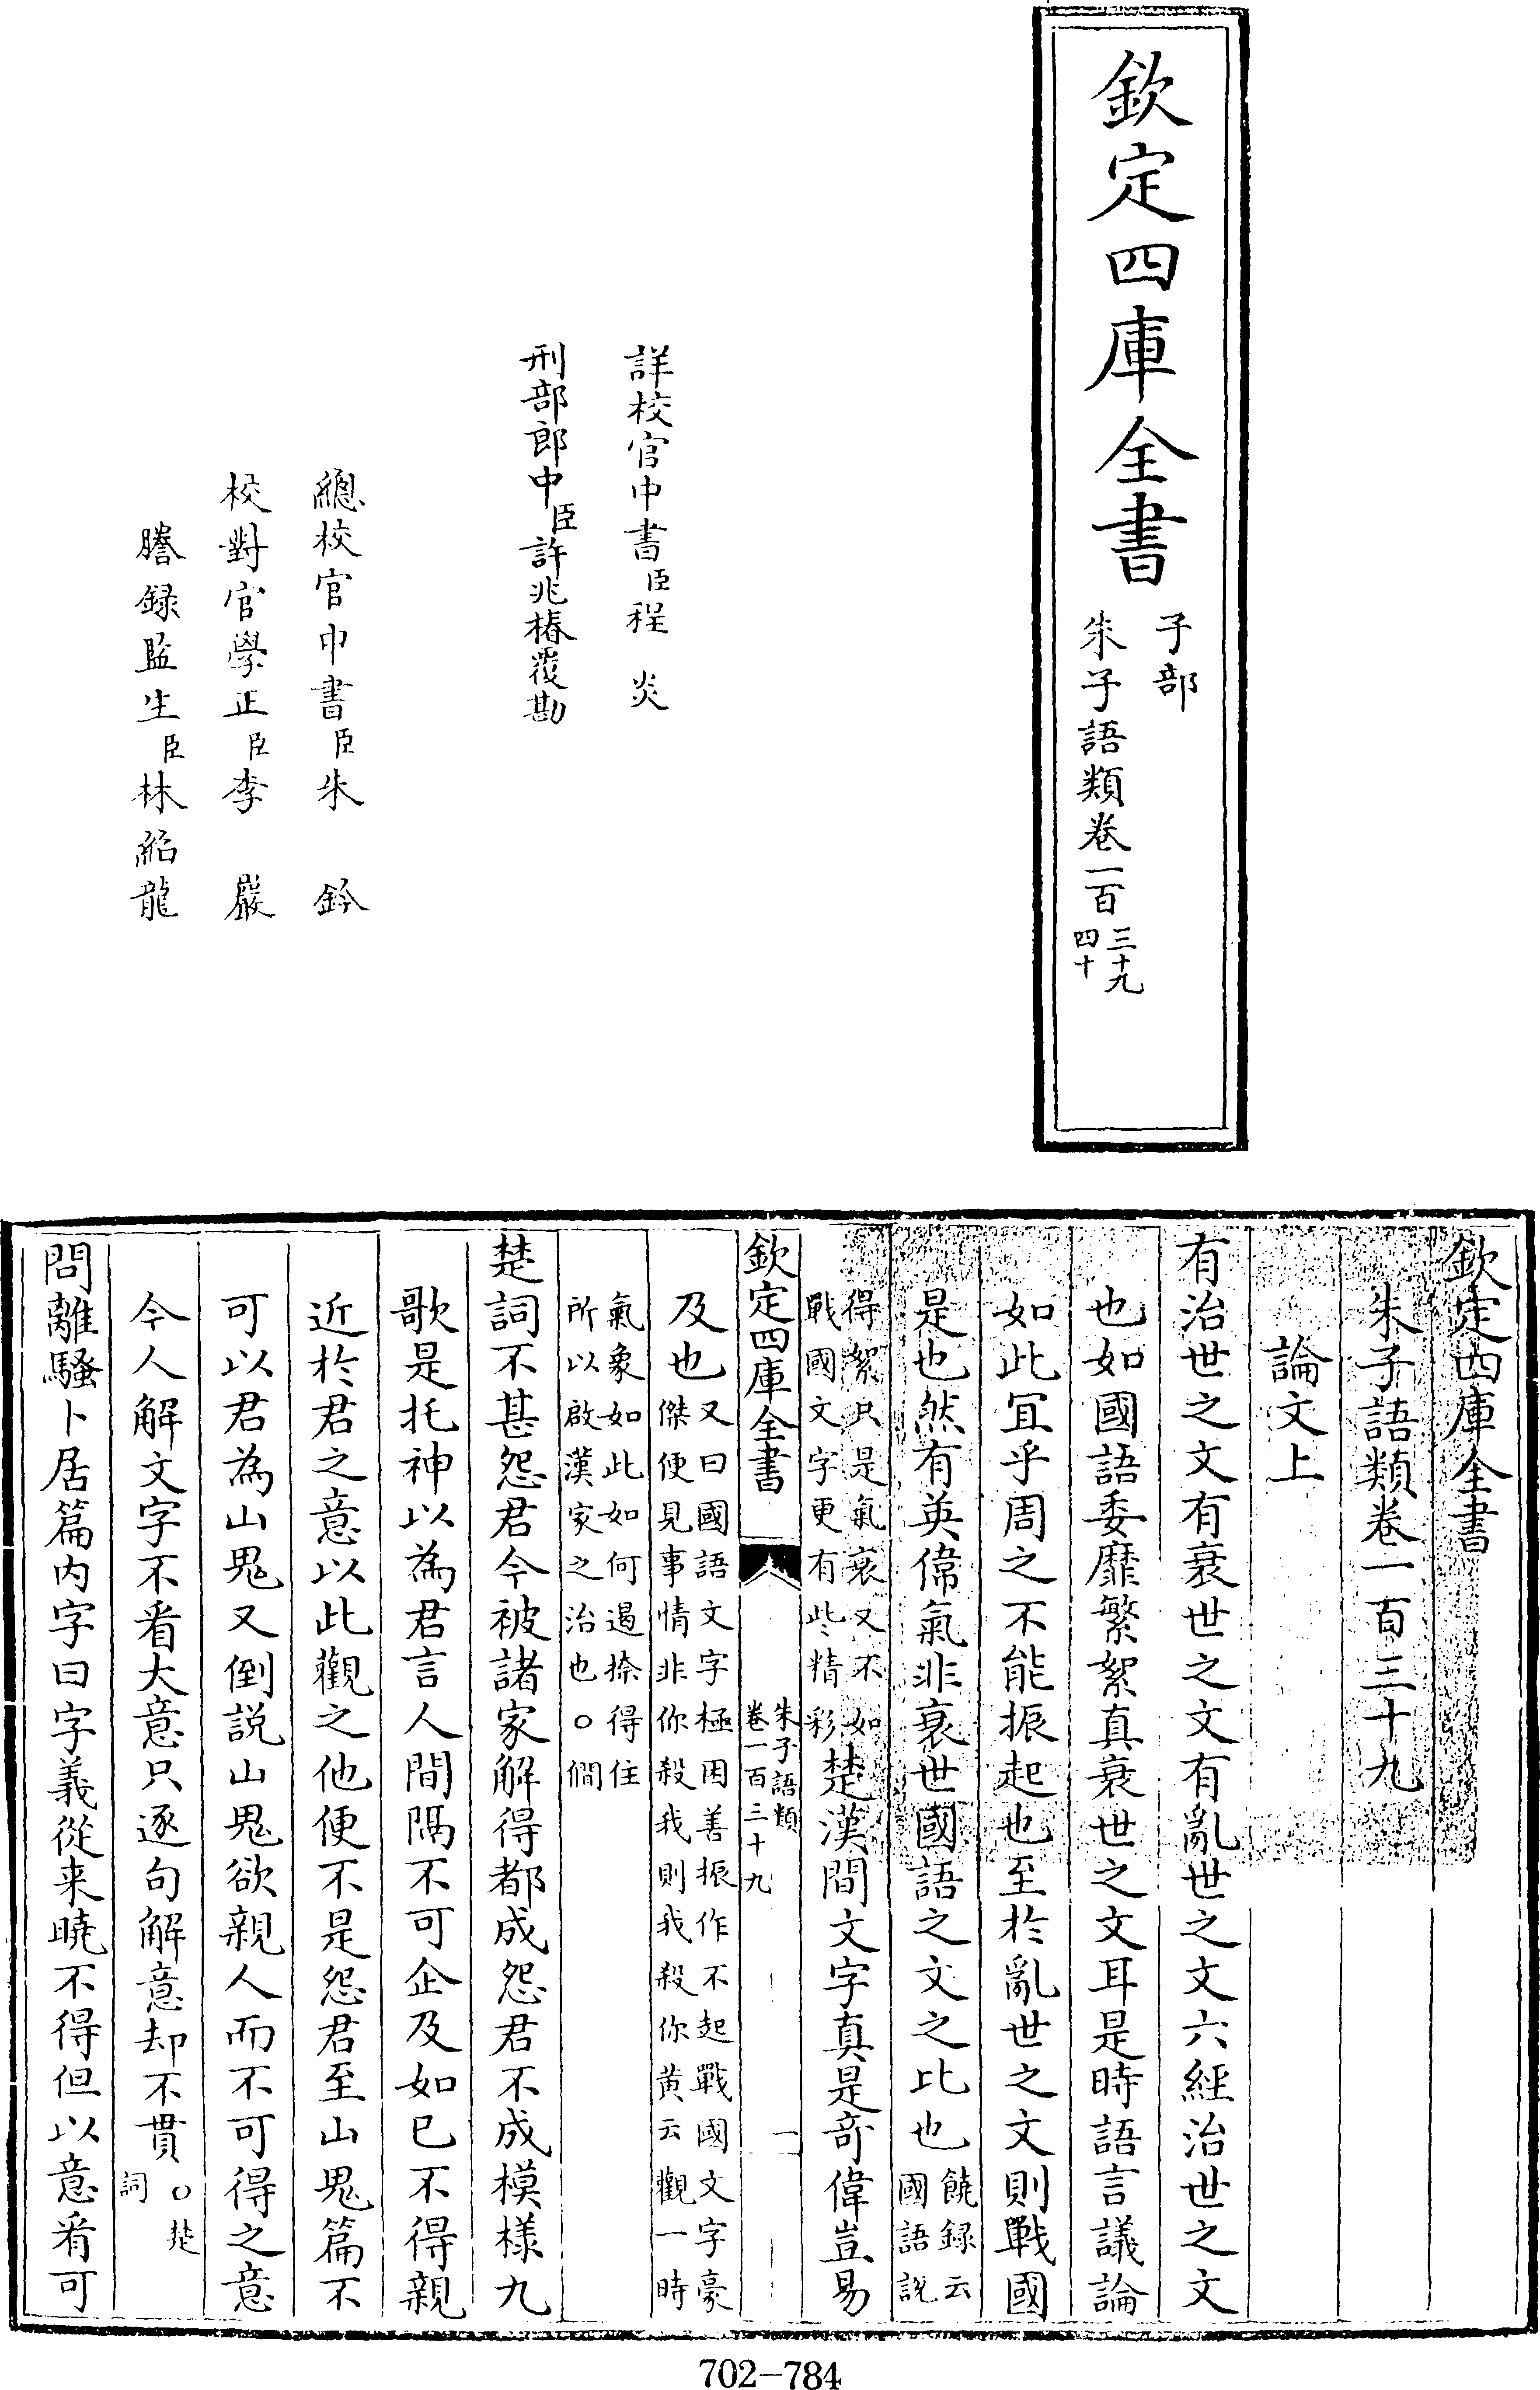 欽定四庫全書
子部
朱子語類卷一百
三十九
四十
詳校官中書臣程炎
刑部郎中臣許兆椿覆勘
總校官中書臣朱鈐
校對官學正臣李巖
謄錄監生臣林紹龍
欽定四庫全書
朱子語類卷一百三十九
論文上
有治世之文有衰世之文有亂世之文六經治世之文
也如國語委靡繁絮真衰世之文耳是時語言議論
如此宜乎周之不能振起也至於亂世之文則戰國
是也然有英偉氣非衰世國語之文之比也
饒錄云
國語說
得絮只是氣衰又不如
戰國文字更有些精彩
楚漢間文字真是奇偉豈易
欽定四庫全書
朱子語類
卷一百三十九
一
及也
又曰國語文字極困善振作不起戰國文字豪
傑便見事情非你殺我則我殺你黃云觀一時
氣象如此如何遏捺得住
所以啟漢家之治也○僩
楚詞不甚怨君今被諸家解得都成怨君不成模樣九
歌是托神以為君言人間隔不可企及如已不得親
近於君之意以此觀之他便不是怨君至山鬼篇不
可以君為山鬼又倒說山鬼欲親人而不可得之意
今人解文字不看大意只逐句解意却不貫
○楚
詞
問離騷卜居篇内字曰字義從来曉不得但以意看可
702-784